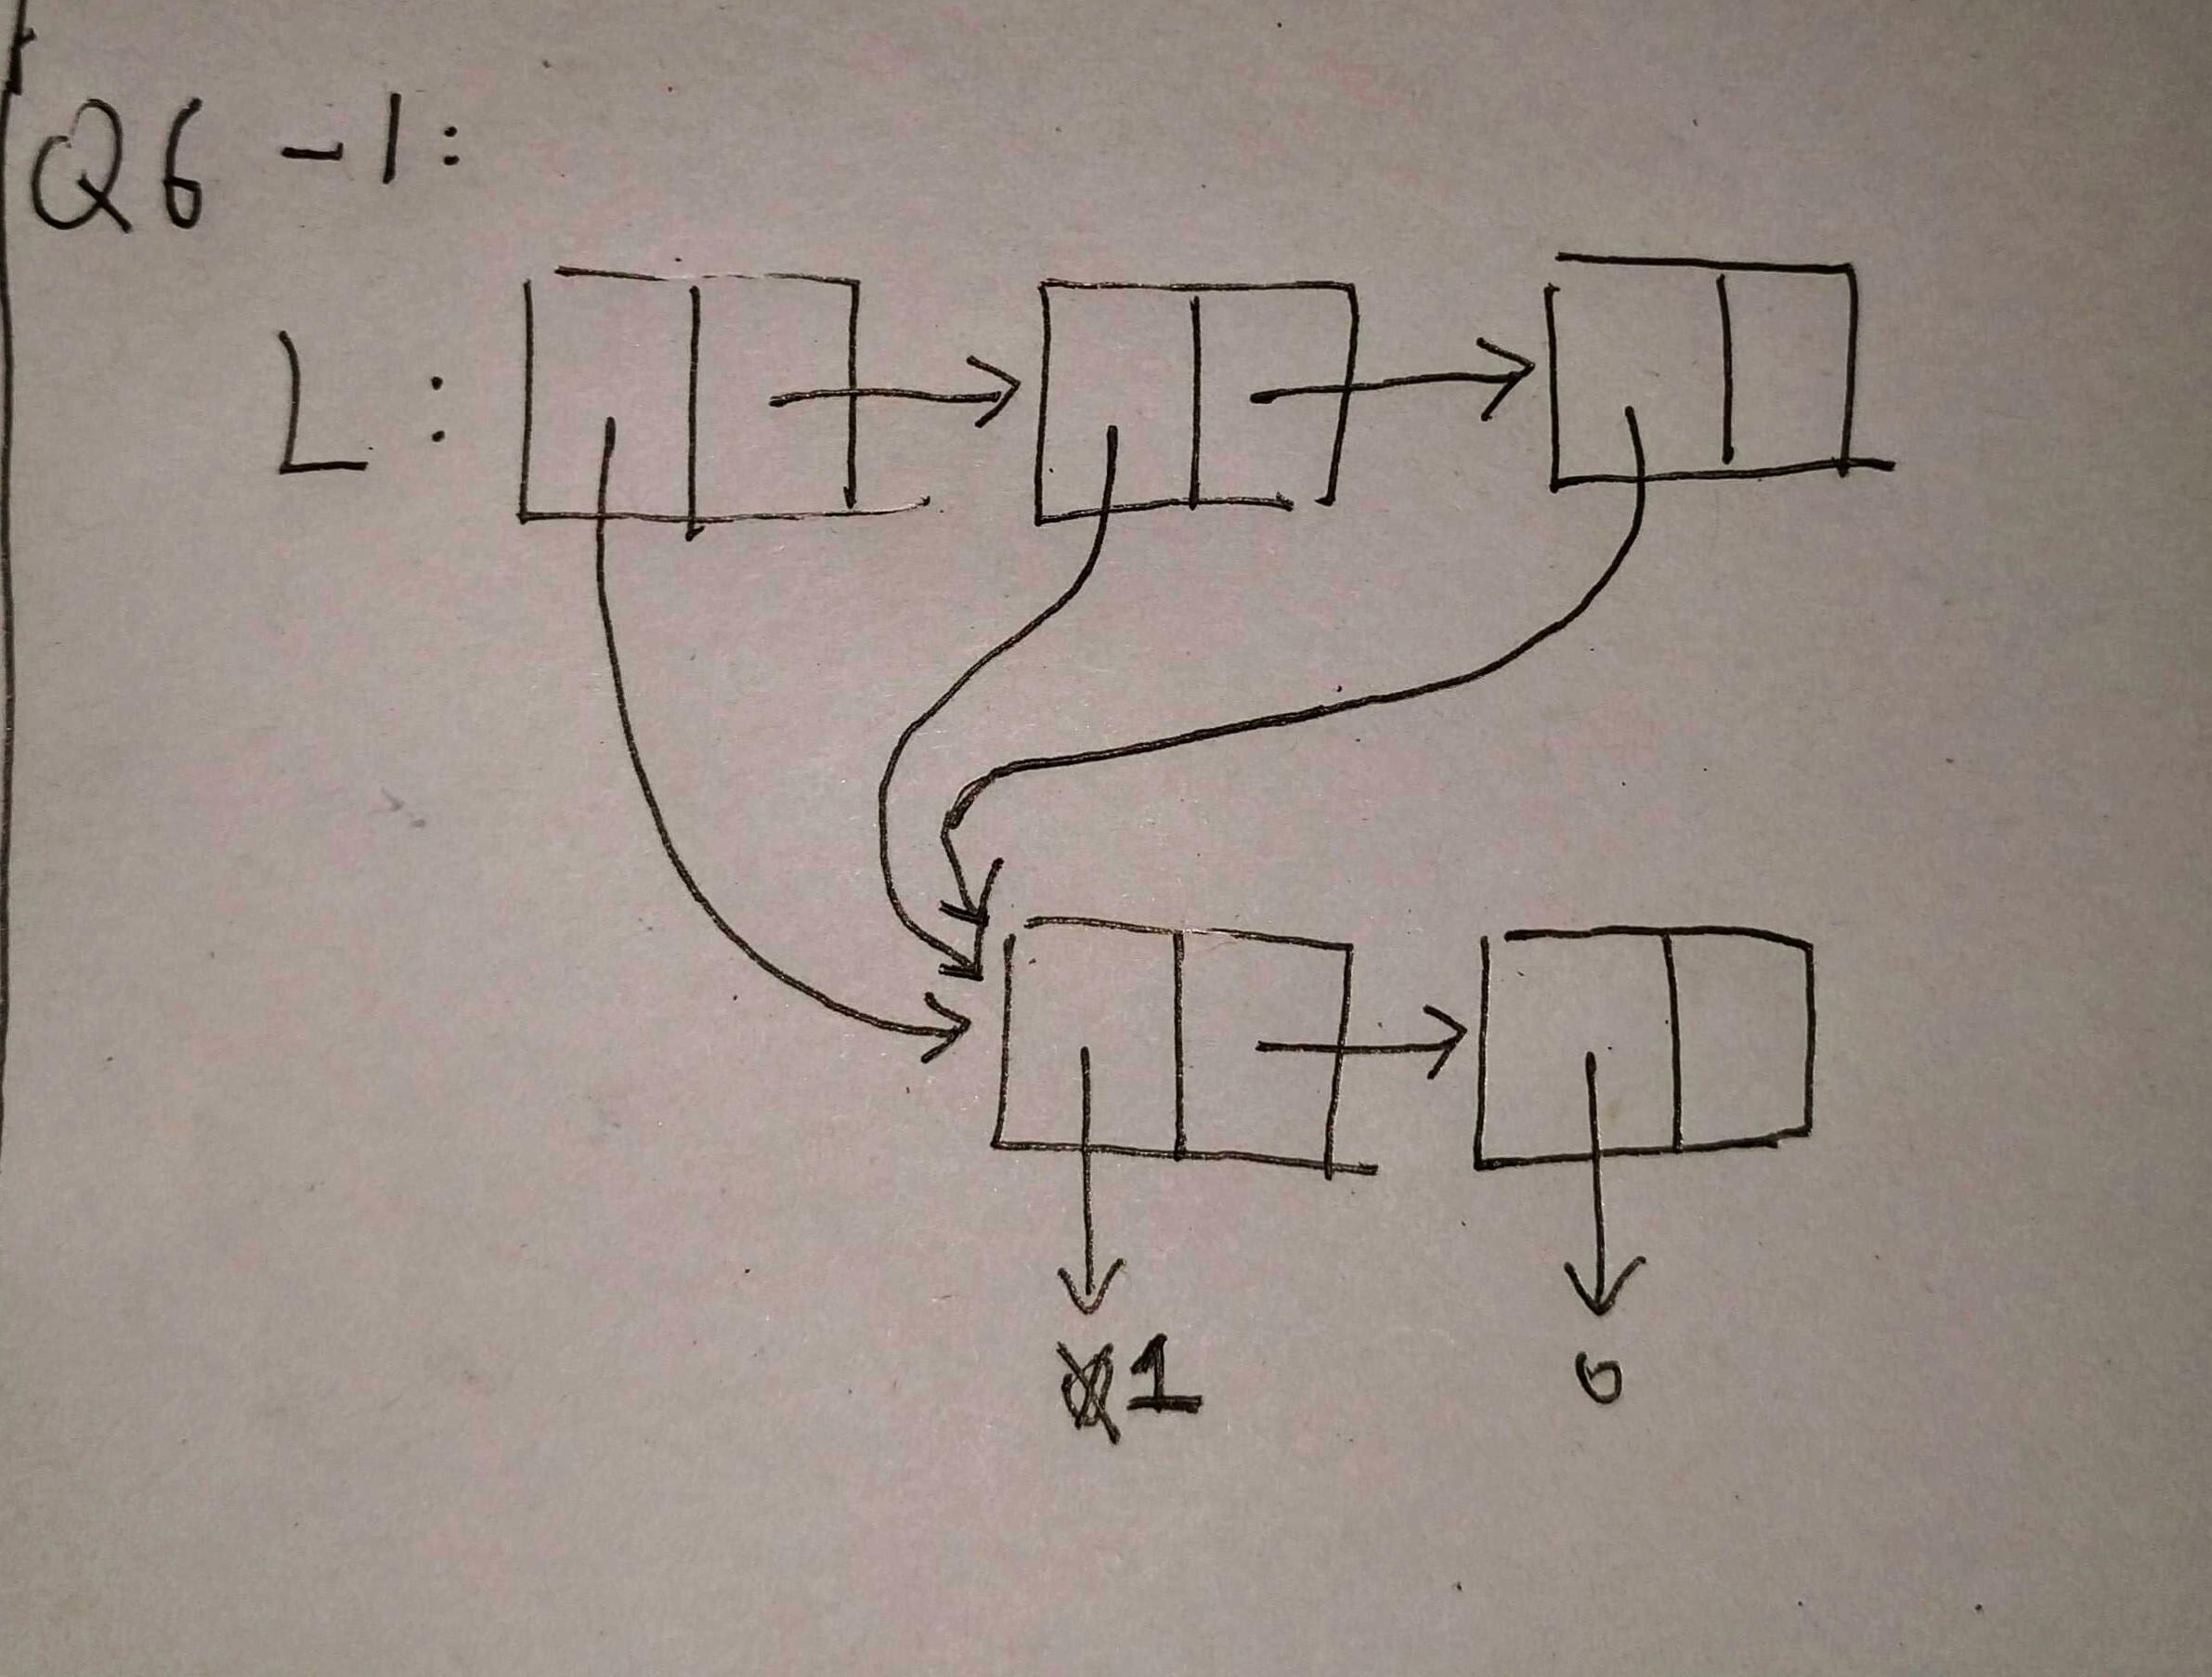 Q6 -1:
L:
1 0